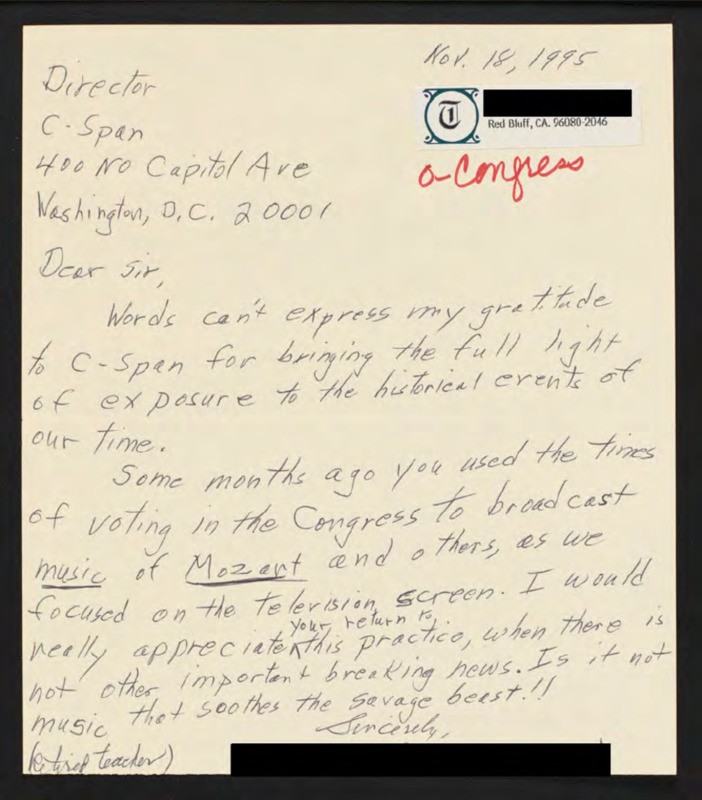 Nov. 18, 1995
Director
C-Span
400 No Capitol Ave
Washington, D.C. 20001
T
Red Bluff, CA. 96080-2046
a-Congress
Dear Sir,
Words can't express my gratitude
to C-Span for bringing the full light
of exposure to the historical events of
our time.
Some months ago you used the times
of voting in the Congress to broadcast
music of Mozart and others, as we
focused on the television screen. I would
really appreciate your return to this practice, when there is
not other important breaking news. Is it not
music that soothes the savage beast!!
Sincerely,
(retired teacher)